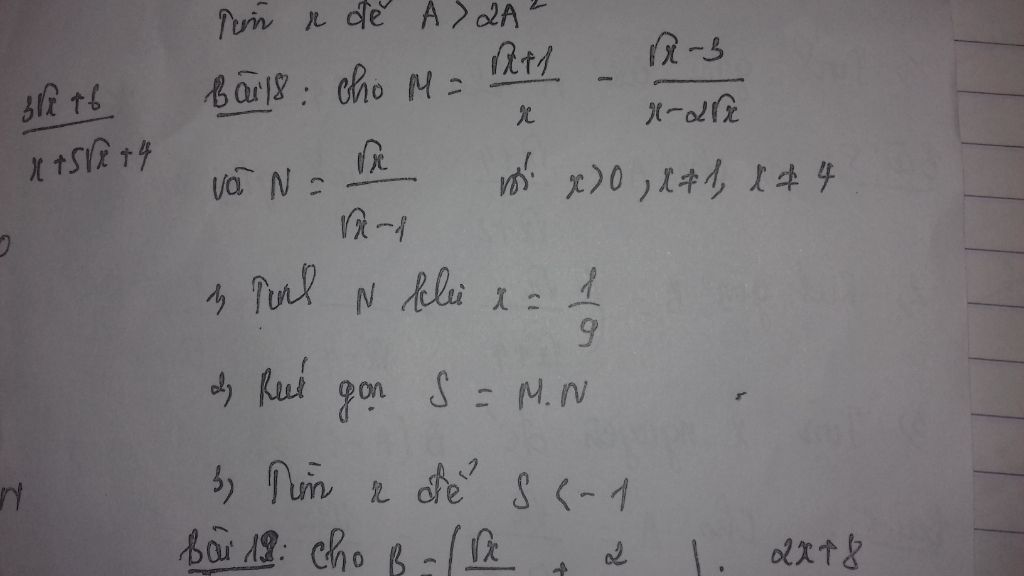 Tìm x để A > 2A²
3√x + 6 / x + 5√x + 4
Bài 18: Cho M = √x+1 / x - √x-3 / x-2√x
và N = √x / √x-1 với x>0, x≠1, x≠4
1, Tính N khi x = 1/9
2, Rút gọn S = M.N
3, Tìm x để S < -1
Bài 19: Cho B = ( √x + 2 ) : 2x+8